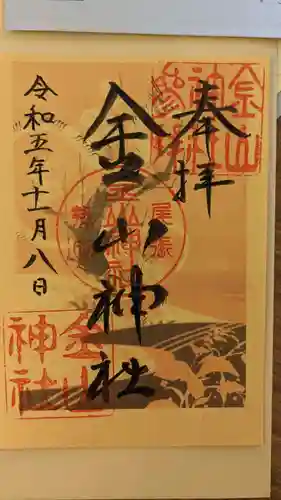 奉拝
金山神社
令和五年十一月八日
金山神社
尾張
金山神社
金山神社